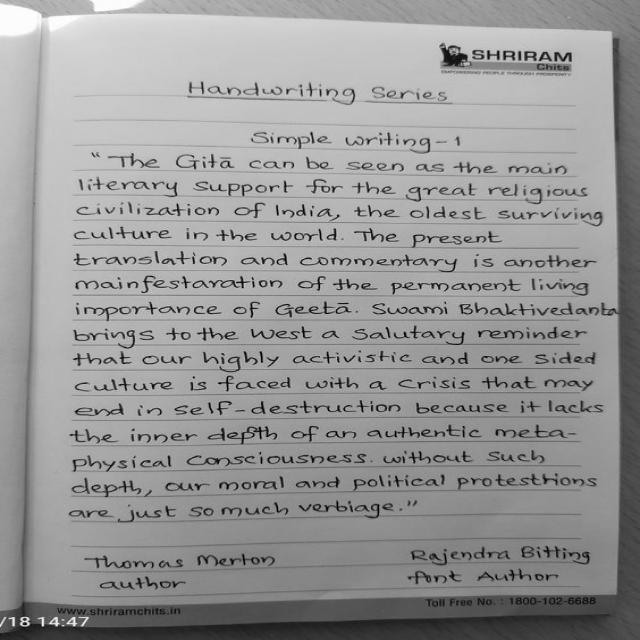 SHRIRAM
Chits
EMPOWERING PEOPLE THROUGH PROSPERITY
Handwriting Series
Simple writing-1
"The Gitā can be seen as the main
literary support for the great religious
civilization of India, the oldest surviving
culture in the world. The present
translation and commentary is another
mainfestaration of the permanent living
importance of Geetā. Swami Bhaktivedanta
brings to the West a Salutary reminder
that our highly activistic and one sided
culture is faced with a crisis that may
end in self-destruction because it lacks
the inner depth of an authentic meta-
physical consciousness. without such
depth, our moral and political protesthions
are just so much verbiage."
Thomas Merton Rajendra Bitting
author font Author
www.shriramchits.in Toll Free No. : 1800-102-6688
/18 14:47